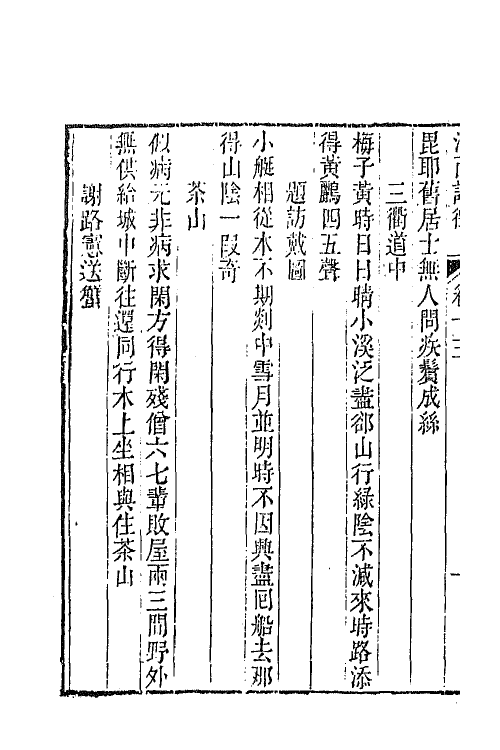 江西詩徵 卷十三 一
毘耶舊居士無人問疾鬢成絲
三衢道中
梅子黃時日日晴小溪泛盡郤山行綠陰不減來時路添
得黃鸝四五聲
題訪戴圖
小艇相從本不期剡中雪月並明時不因興盡囘船去那
得山陰一段奇
茶山
似病元非病求閑方得閑殘僧六七輩敗屋兩三間野外
無供給城中斷往還同行木上坐相與住茶山
謝路憲送蟹